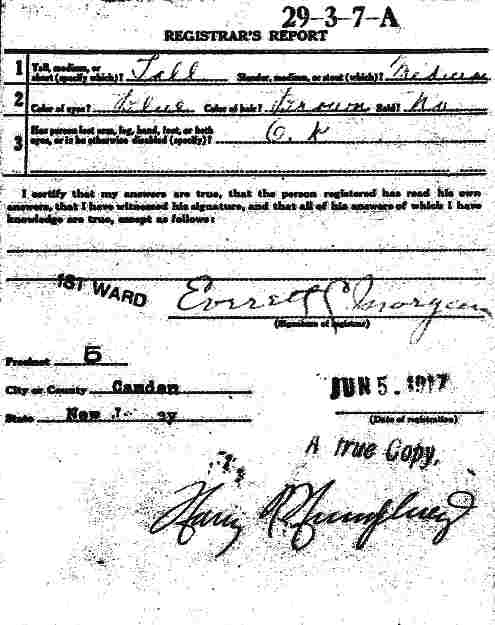 29-3-7-A
REGISTRAR'S REPORT
1 Tall, medium, or short (specify which)? Tall Slender, medium, or stout (which)? Medium
2 Color of eyes? Blue Color of hair? Brown Bald? No
3 Has person lost arm, leg, hand, foot, or both eyes, or is he otherwise disabled (specify)? O. K
I certify that my answers are true, that the person registered has read his own
answers, that I have witnessed his signature, and that all of his answers of which I have
knowledge are true, except as follows:
1ST WARD
Everett C Morgan
(Signature of registrar)
Precinct 5
City or County Camden
JUN 5. 1917
State New
(Date of registration)
A true Copy.
Harry Humphrey